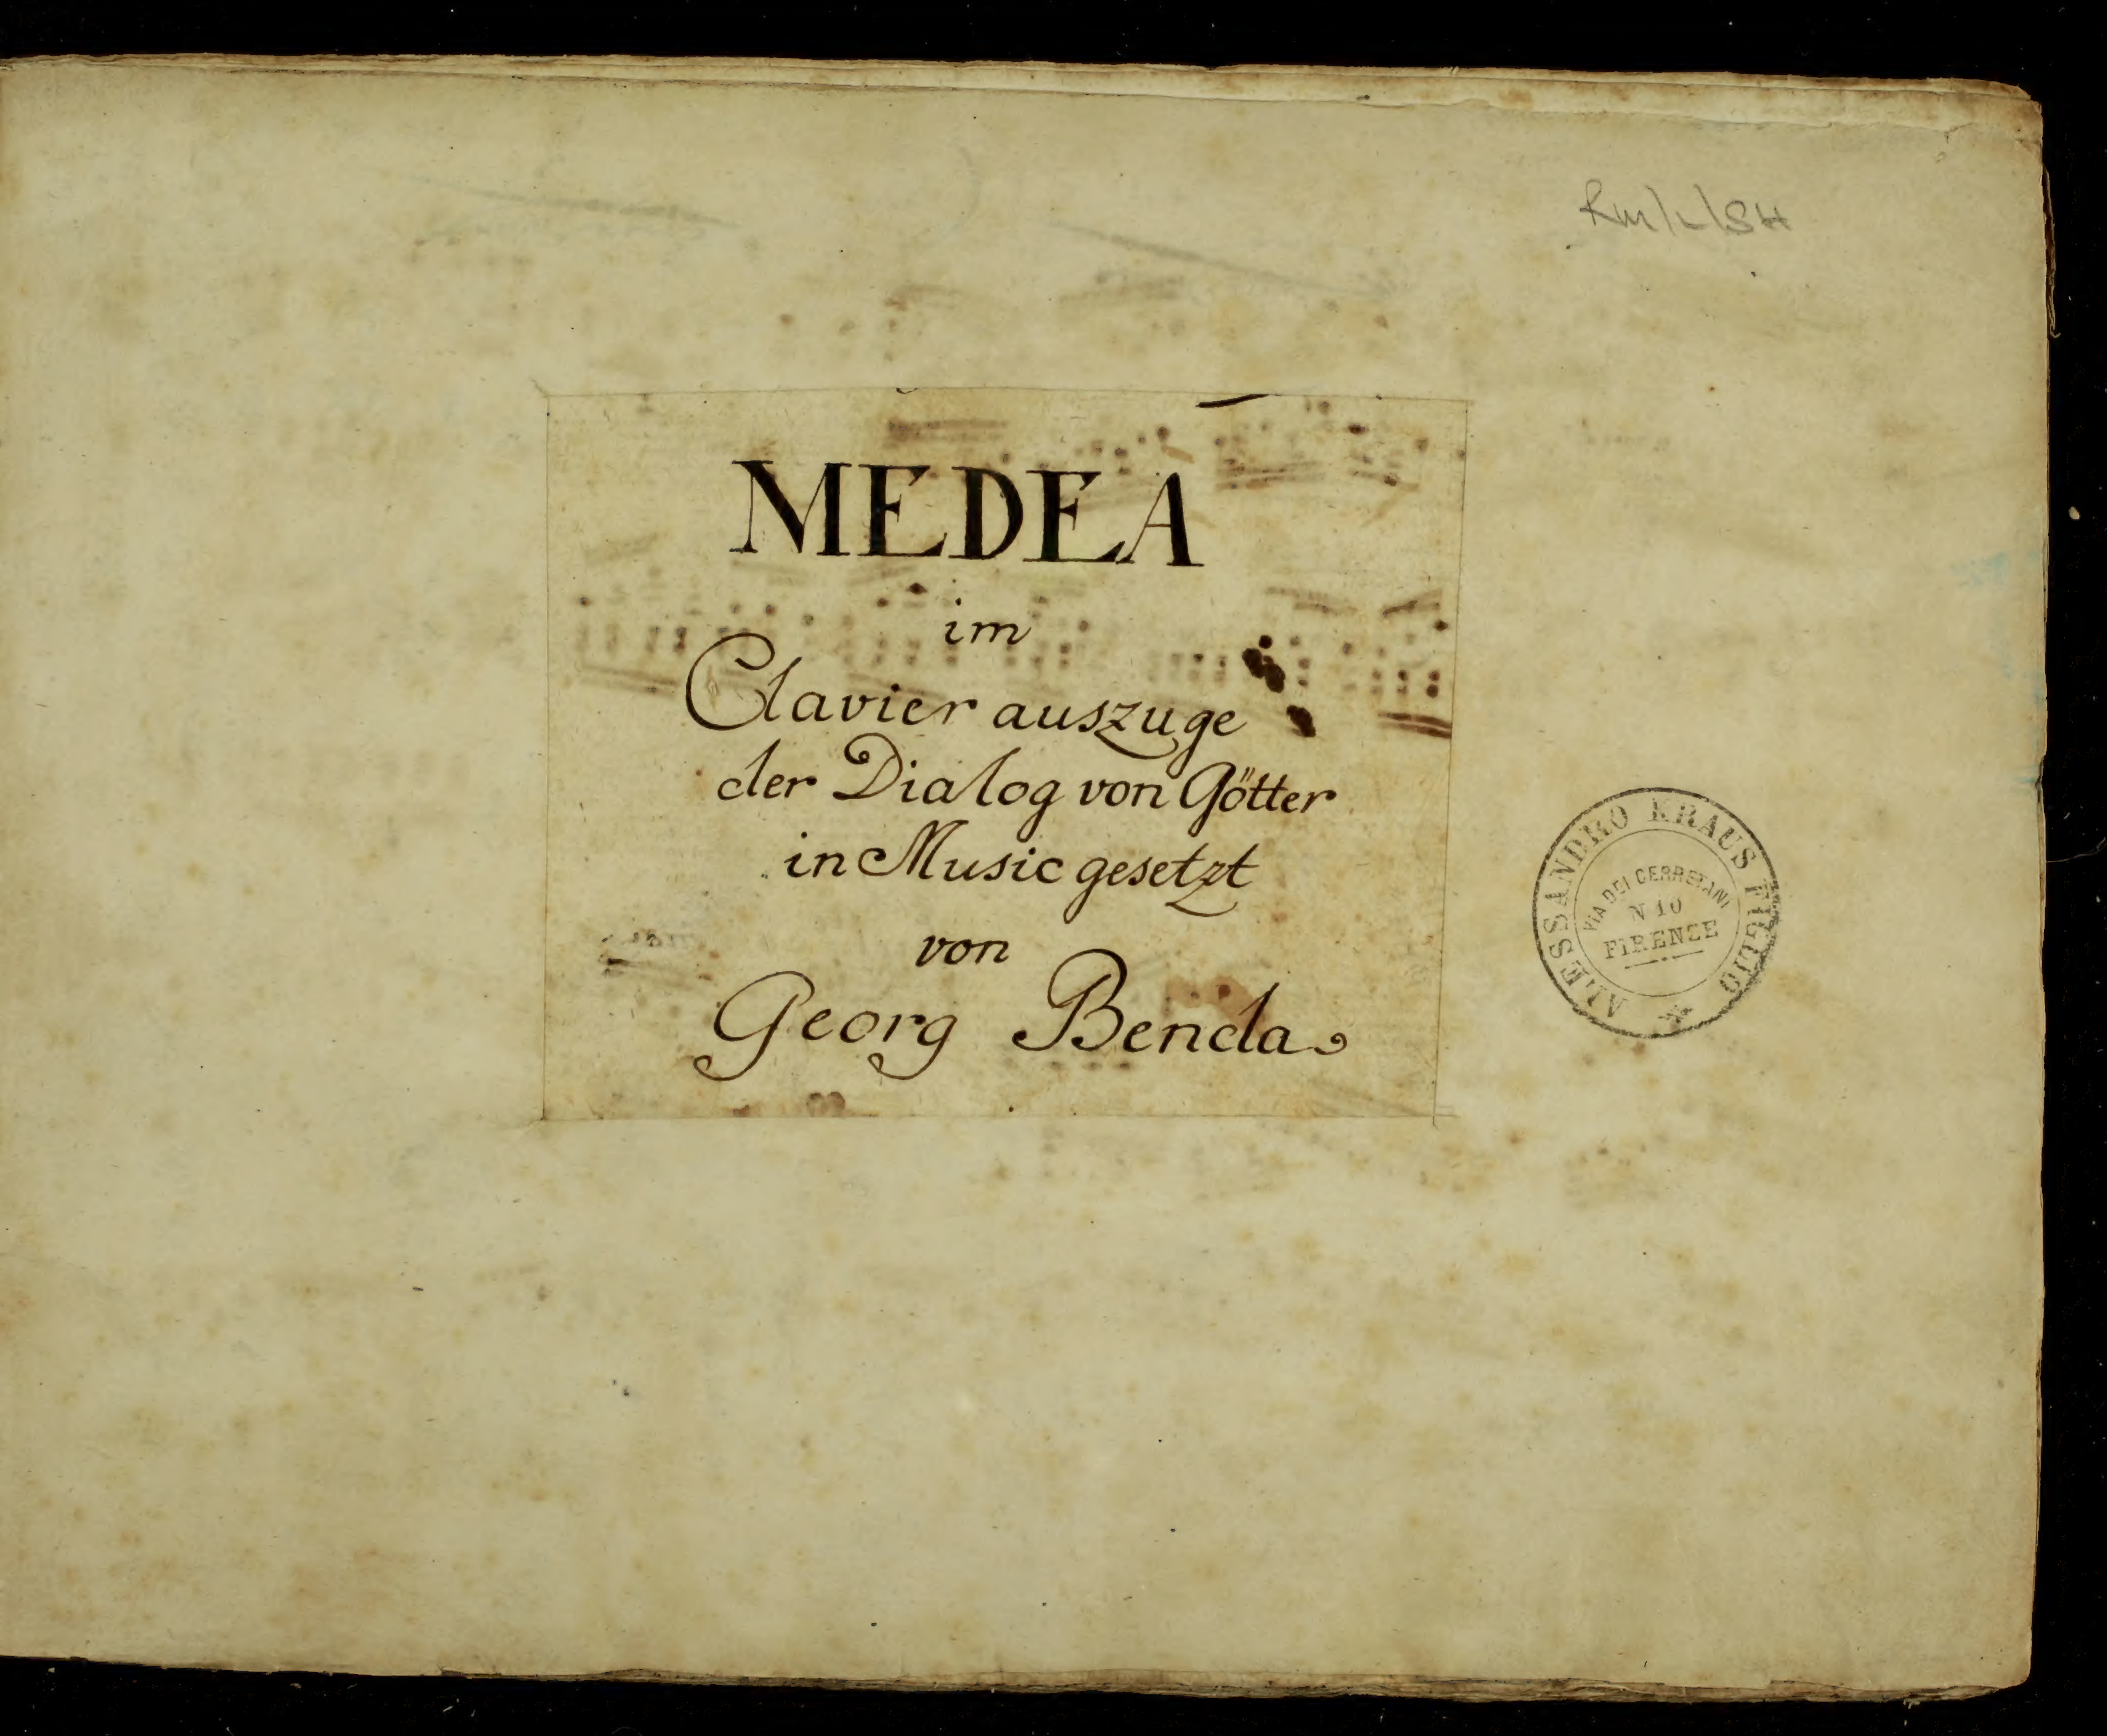 Rm/L/SH
MEDEA
im
Clavier auszuge
der Dialog von Götter
in Music gesetzt
von
Georg Benda
ALESSANDRO KRAUS FIGLIO
VIA DEI CERRETANI
N 10
FIRENZE